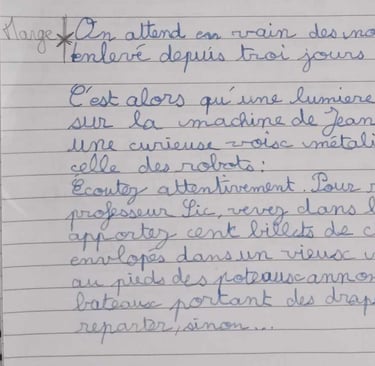 Marge
On attend en vain des no
enlevé depuis troi jours
C'est alors qu'une lumiere
sur la machine de Jean
une curieuse voisc métali
celle des robots :
Écoutez attentivement. Pour r
professeur Sic, vevez dans l
apportez cent billets de c
envelopés dans un vieusc v
au pieds des poteausc annon
bateausc portant des drap
reparter, sinon...